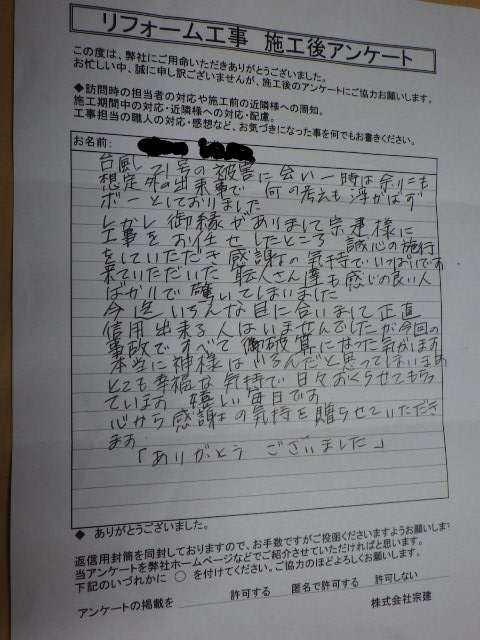 リフォーム工事 施工後アンケート
この度は、弊社にご用命いただきありがとうございました。
お忙しい中、誠に申し訳ございませんが、施工後のアンケートにご協力お願いします。
◆訪問時の担当者の対応や施工前の近隣様への周知。
施工期間中の対応・近隣様への対応・配慮。
工事担当の職人の対応・感想など、お気づきになった事を何でもお書きください。
お名前:
台風21号の被害に会い一時は余りにも
想定外の出来事で 何の考えも浮かばず
ボーとしておりました
しかし御縁がありまして宗建様に
工事をお任せしたところ 誠心の施行
をしていただき感謝の気持でいっぱいです
来ていただいた 職人さん達も感じの良い人
ばかりで驚いてしまいました
今迄いろんな目に合いまして正直
信用出来る人はいませんでしたが今回の
事故ですべて 破算になった気がします
本当に神様はいるんだと思ってしまいます
とても幸福な気持で日々おくらせてもらっ
ています 嬉しい毎日です
心から感謝の気持を贈らせていただき
ます
「ありがとう ございました」
◆ ありがとうございました。
返信用封筒を同封しておりますので、お手数ですがご投函くださいますようお願いしま
当アンケートを弊社ホームページなどでご紹介させていただければと思います。
下記のいづれかに ○ を付けてください。ご協力のほどよろしくお願します。
アンケートの掲載を 許可する 匿名で許可する 許可しない
株式会社宗建